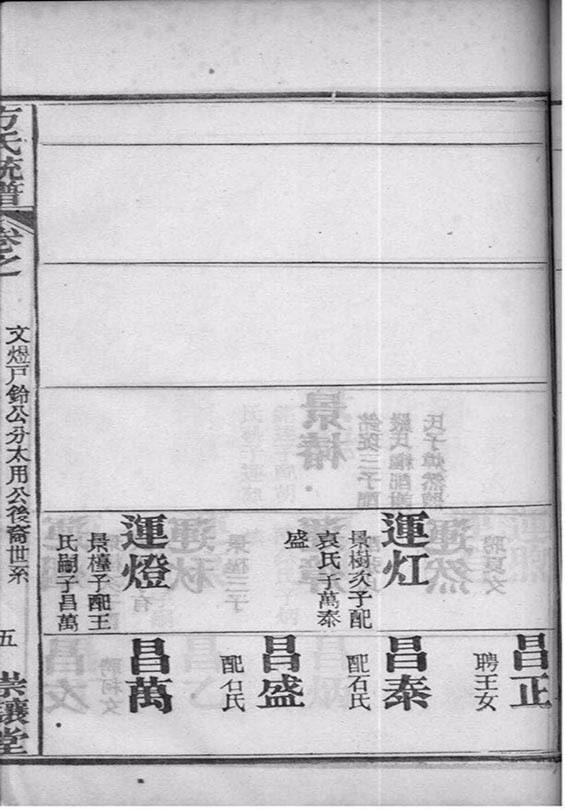 運灴
景樹次子配
袁氏子萬泰
盛
運燈
景檯子配王
氏嗣子昌萬
昌正
聘王女
昌泰
配石氏
昌盛
配石氏
昌萬
方氏統譜
卷之
文煜戶鈴公分太用公後裔世系
五
崇讓堂